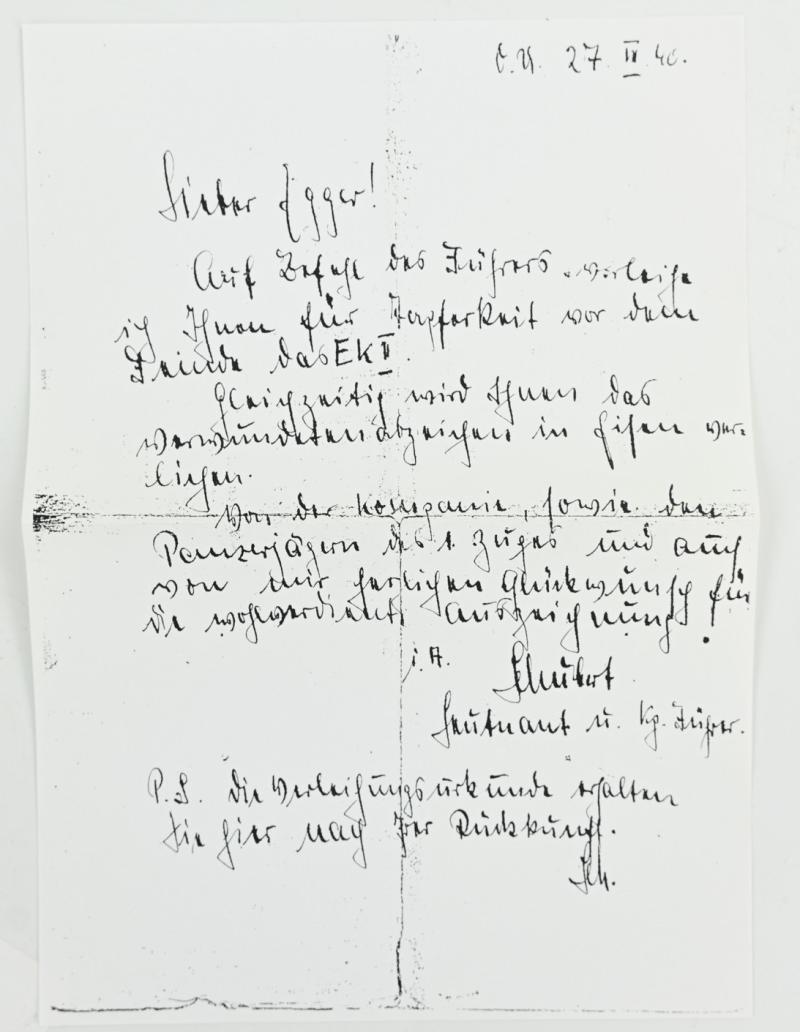 O.U. 27. IX. 40.
Lieber Egger!
Auf Befehl des Führers verleihe
ich Ihnen für Tapferkeit vor dem
Feinde das EK II.
Gleichzeitig wird Ihnen das
Verwundetenabzeichen in Eisen ver=
liehen.
Von der Kompanie, sowie den
Panzerjägern des 1. Zuges und auch
von mir herzlichen Glückwunsch für
die wohlverdiente Auszeichnung!
i.A.
Schubert
Leutnant u. Kp. Führer.
P.S. Die Verleihungsurkunde erhalten
Sie hier nach Irer Rückkunft.
Sch.